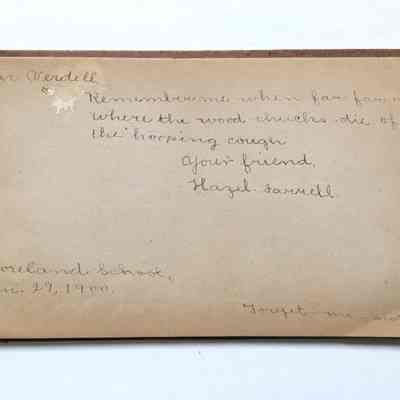 Verdell
Remember me when far far
where the wood chucks die of
the hooping cough
Your friend,
Hazel Farrell.
School,
29, 1900.
Forget me not